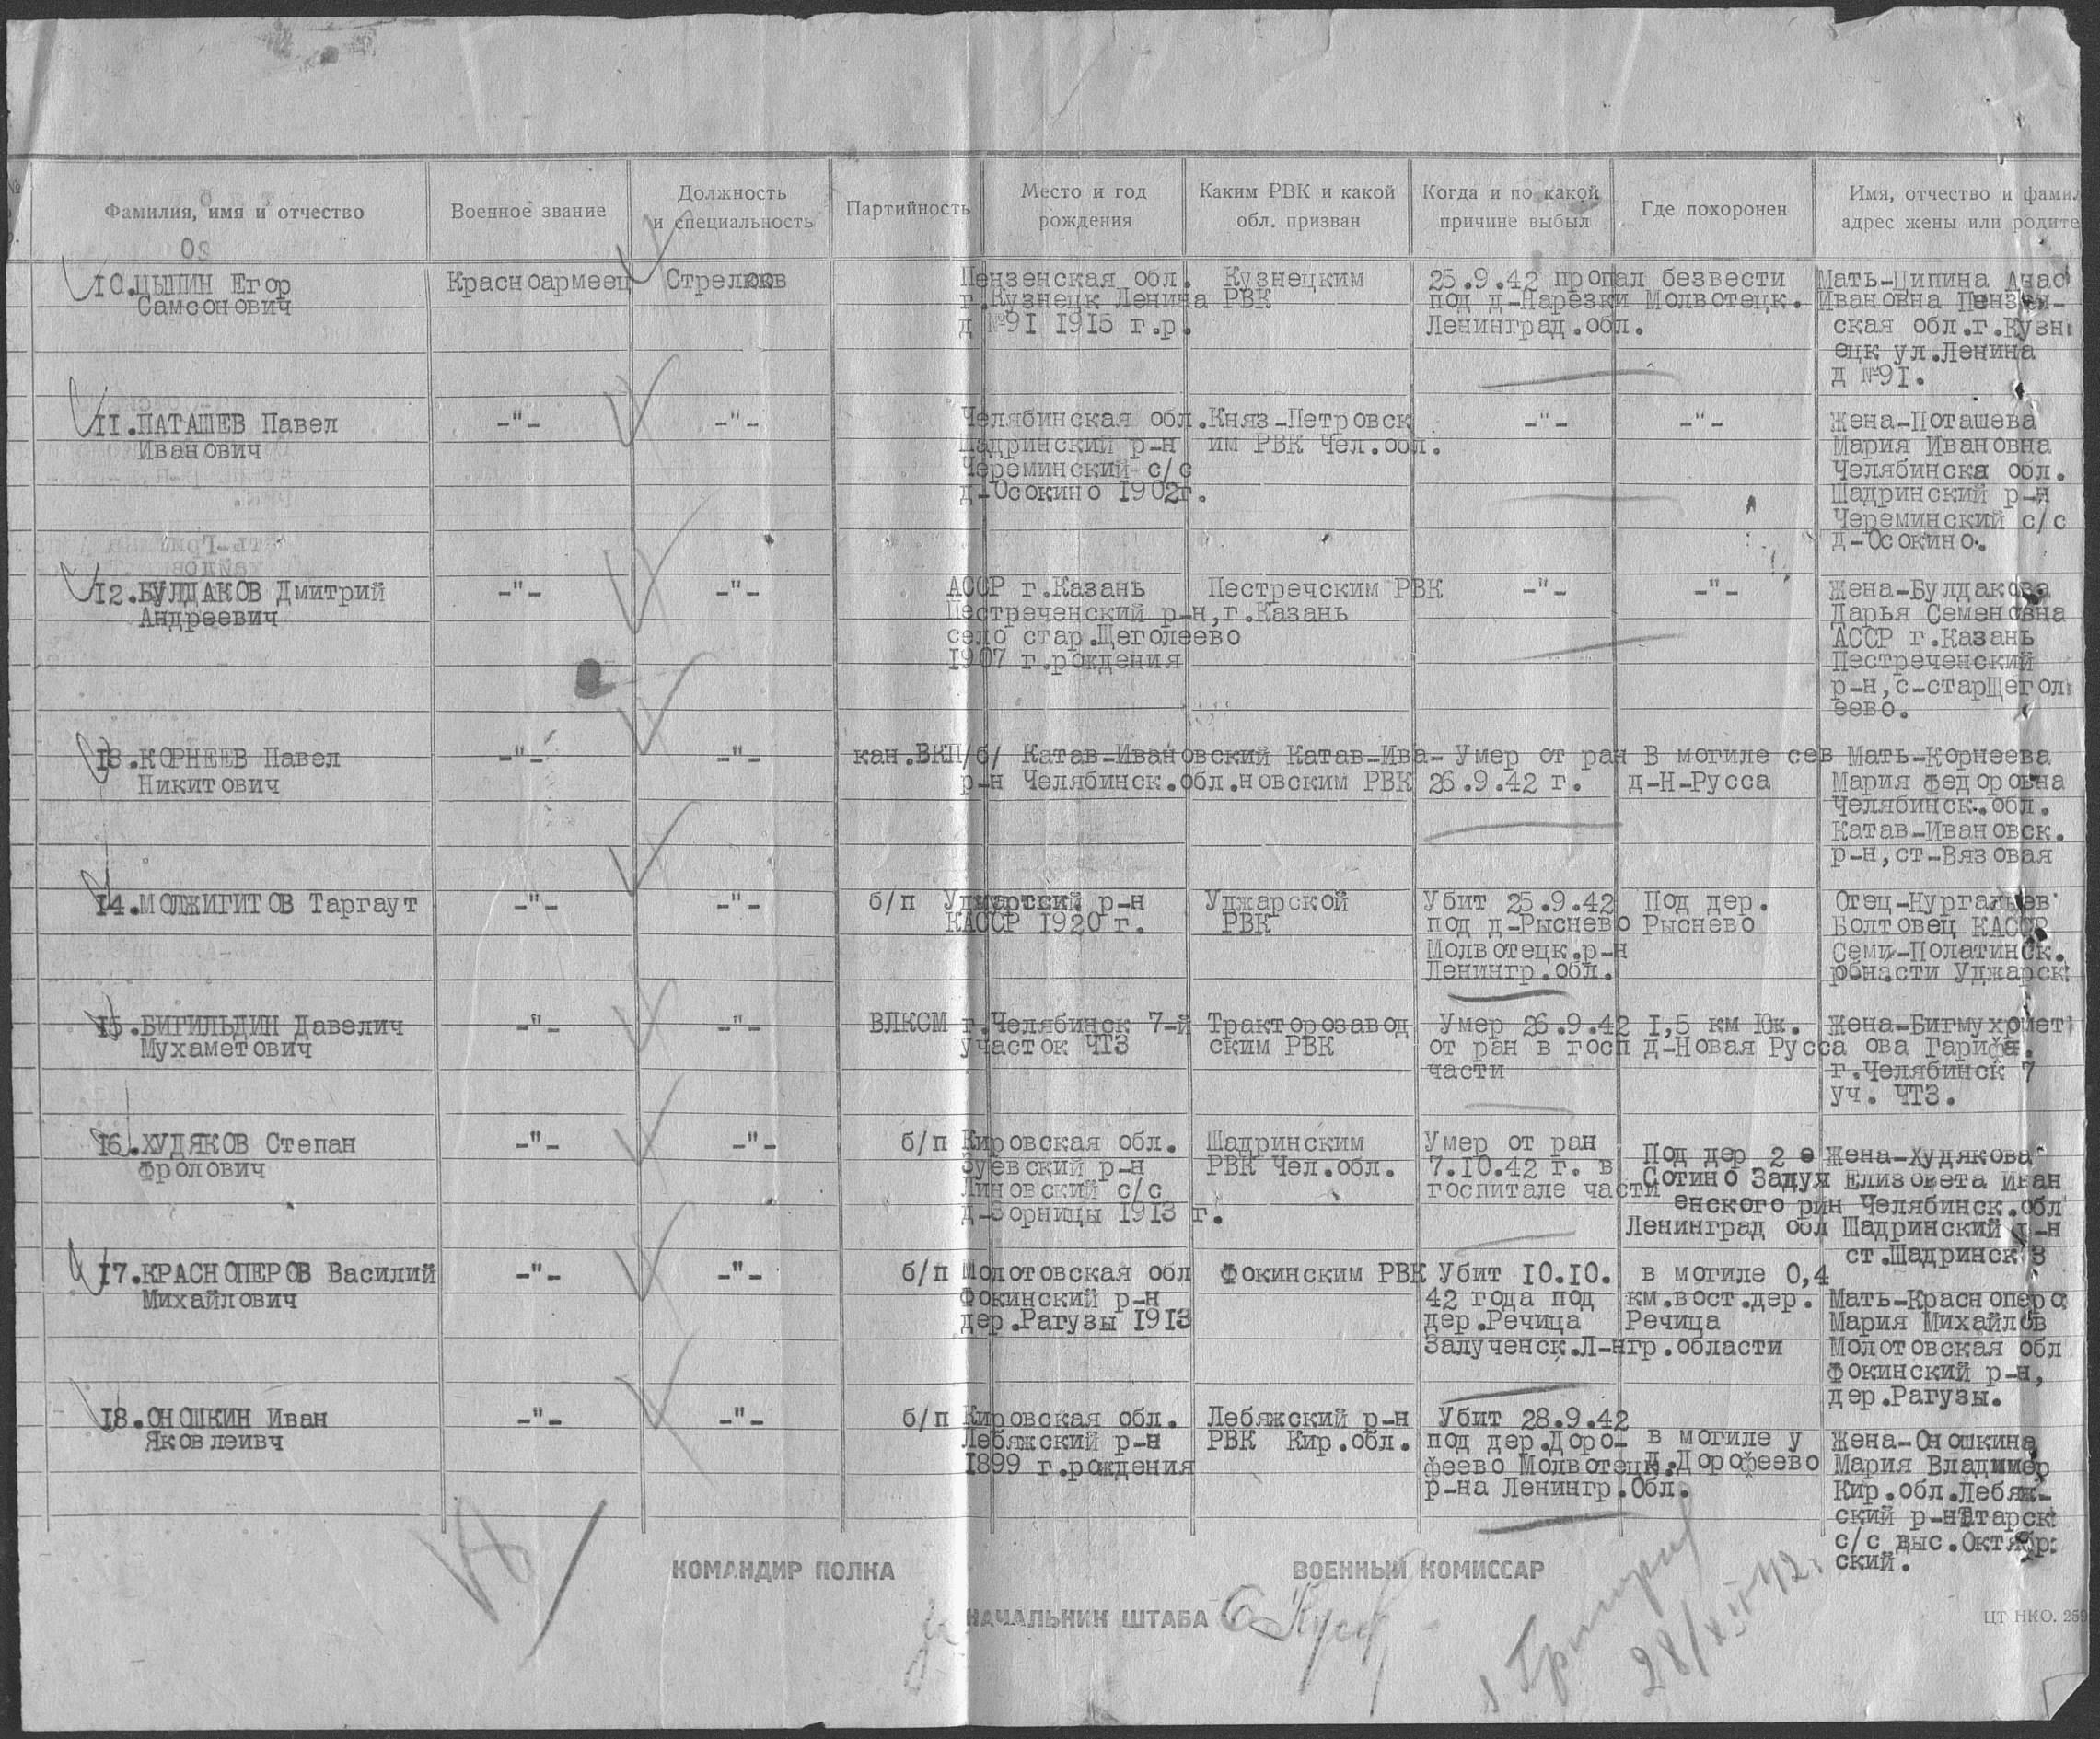 №
Фамилия, имя и отчество
Военное звание
Должность
и специальность
Партийность
Место и год
рождения
Каким РВК и какой
обл. призван
Когда и по какой
причине выбыл
Где похоронен
Имя, отчество и фамил
адрес жены или родите
10.ЦЫПИН Егор
Самсонович
Красноармеец
Стрелков
Пензенская обл.
г.Кузнецк Ленина
д №91 1915 г.р.
Кузнецким
РВК
25.9.42 пропал безвести
под д-Нарезки Молвотецк.
Ленинград.обл.
Мать-Ципина Анас
Ивановна Пензен-
ская обл.г.Кузн
ецк ул.Ленина
д №91.
11.ПАТАШЕВ Павел
Иванович
-"-
-"-
Челябинская обл.
Шадринский р-н
Череминский с/с
д-Осокино 1902г.
Княз-Петровск
им РВК Чел.обл.
-"-
-"-
Жена-Поташева
Мария Ивановна
Челябинска обл.
Шадринский р-н
Череминский с/с
д-Осокино.
12.БУЛДАКОВ Дмитрий
Андреевич
-"-
-"-
АССР г.Казань
Пестреченский р-н,г.Казань
село стар.Щеголеево
1907 г.рождения
Пестречским РВК
-"-
-"-
Жена-Булдакова
Дарья Семеновна
АССР г.Казань
Пестреченский
р-н,с-старЩегол
еево.
13.КОРНЕЕВ Павел
Никитович
-"-
-"-
кан.ВКП/б/
Катав-Ивановский
р-н Челябинск.обл.
Катав-Ива-
новским РВК
Умер от ран
26.9.42 г.
В могиле сев
д-Н-Русса
Мать-Корнеева
Мария федоровна
Челябинск.обл.
Катав-Ивановск.
р-н,ст-Вязовая
14.МОЛЖИГИТОВ Таргаут
-"-
-"-
б/п
р-н
КАССР 1920 г.
Уджарской
РВК
Убит 25.9.42
под д-Рыснево
Молвотецк.р-н
Ленингр.обл.
Под дер.
Рыснево
Отец-Нургальев
Болтовец КАССР
Семи-Полатинск.
области Уджарск
15.БИГИЛЬДИН Давелич
Мухаметович
-"-
-"-
ВЛКСМ
г.Челябинск 7-й
участок ЧТЗ
Тракторозавод
ским РВК
Умер 26.9.42
от ран в госп
части
1,5 км Юж.
д-Новая Русса
Жена-Бигмухомет
ова Гарифа.
г.Челябинск 7
уч. ЧТЗ.
16.ХУДЯКОВ Степан
Фролович
-"-
-"-
б/п
Кировская обл.
Зуевский р-н
Линовский с/с
д-Зорницы 1913 г.
Шадринским
РВК Чел.обл.
Умер от ран
7.10.42 г. в
госпитале части
Под дер 2 е
Сотино Залуч
енского рйн
Ленинград обл
Жена-Худякова
Елизовета Иван
Челябинск.обл
Шадринский р-н
ст.Шадринск 3
17.КРАСНОПЕРОВ Василий
Михайлович
-"-
-"-
б/п
Молотовская обл
Фокинский р-н
дер.Рагузы 1913
Фокинским РВК
Убит 10.10.
42 года под
дер.Речица
Залученск.Л-нгр.области
в могиле 0,4
км.вост.дер.
Речица
Мать-Красноперо
Мария Михайлов
Молотовская обл
Фокинский р-н,
дер.Рагузы.
18.ОНОШКИН Иван
Яковлеивч
-"-
-"-
б/п
Кировская обл.
Лебяжский р-н
1899 г.рождения
Лебяжский р-н
РВК Кир.обл.
Убит 28.9.42
под дер.Доро-
феево Молвотецк.
р-на Ленингр.Обл.
в могиле у
д.Дорофеево
Жена-Оношкина
Мария Владимер
Кир.обл.Лебяж-
ский р-н
с/с выс.Октябр
ский.
КОМАНДИР ПОЛКА
ВОЕННЫЙ КОМИССАР
НАЧАЛЬНИК ШТАБА
28/XII 42г.
ЦТ НКО. 259